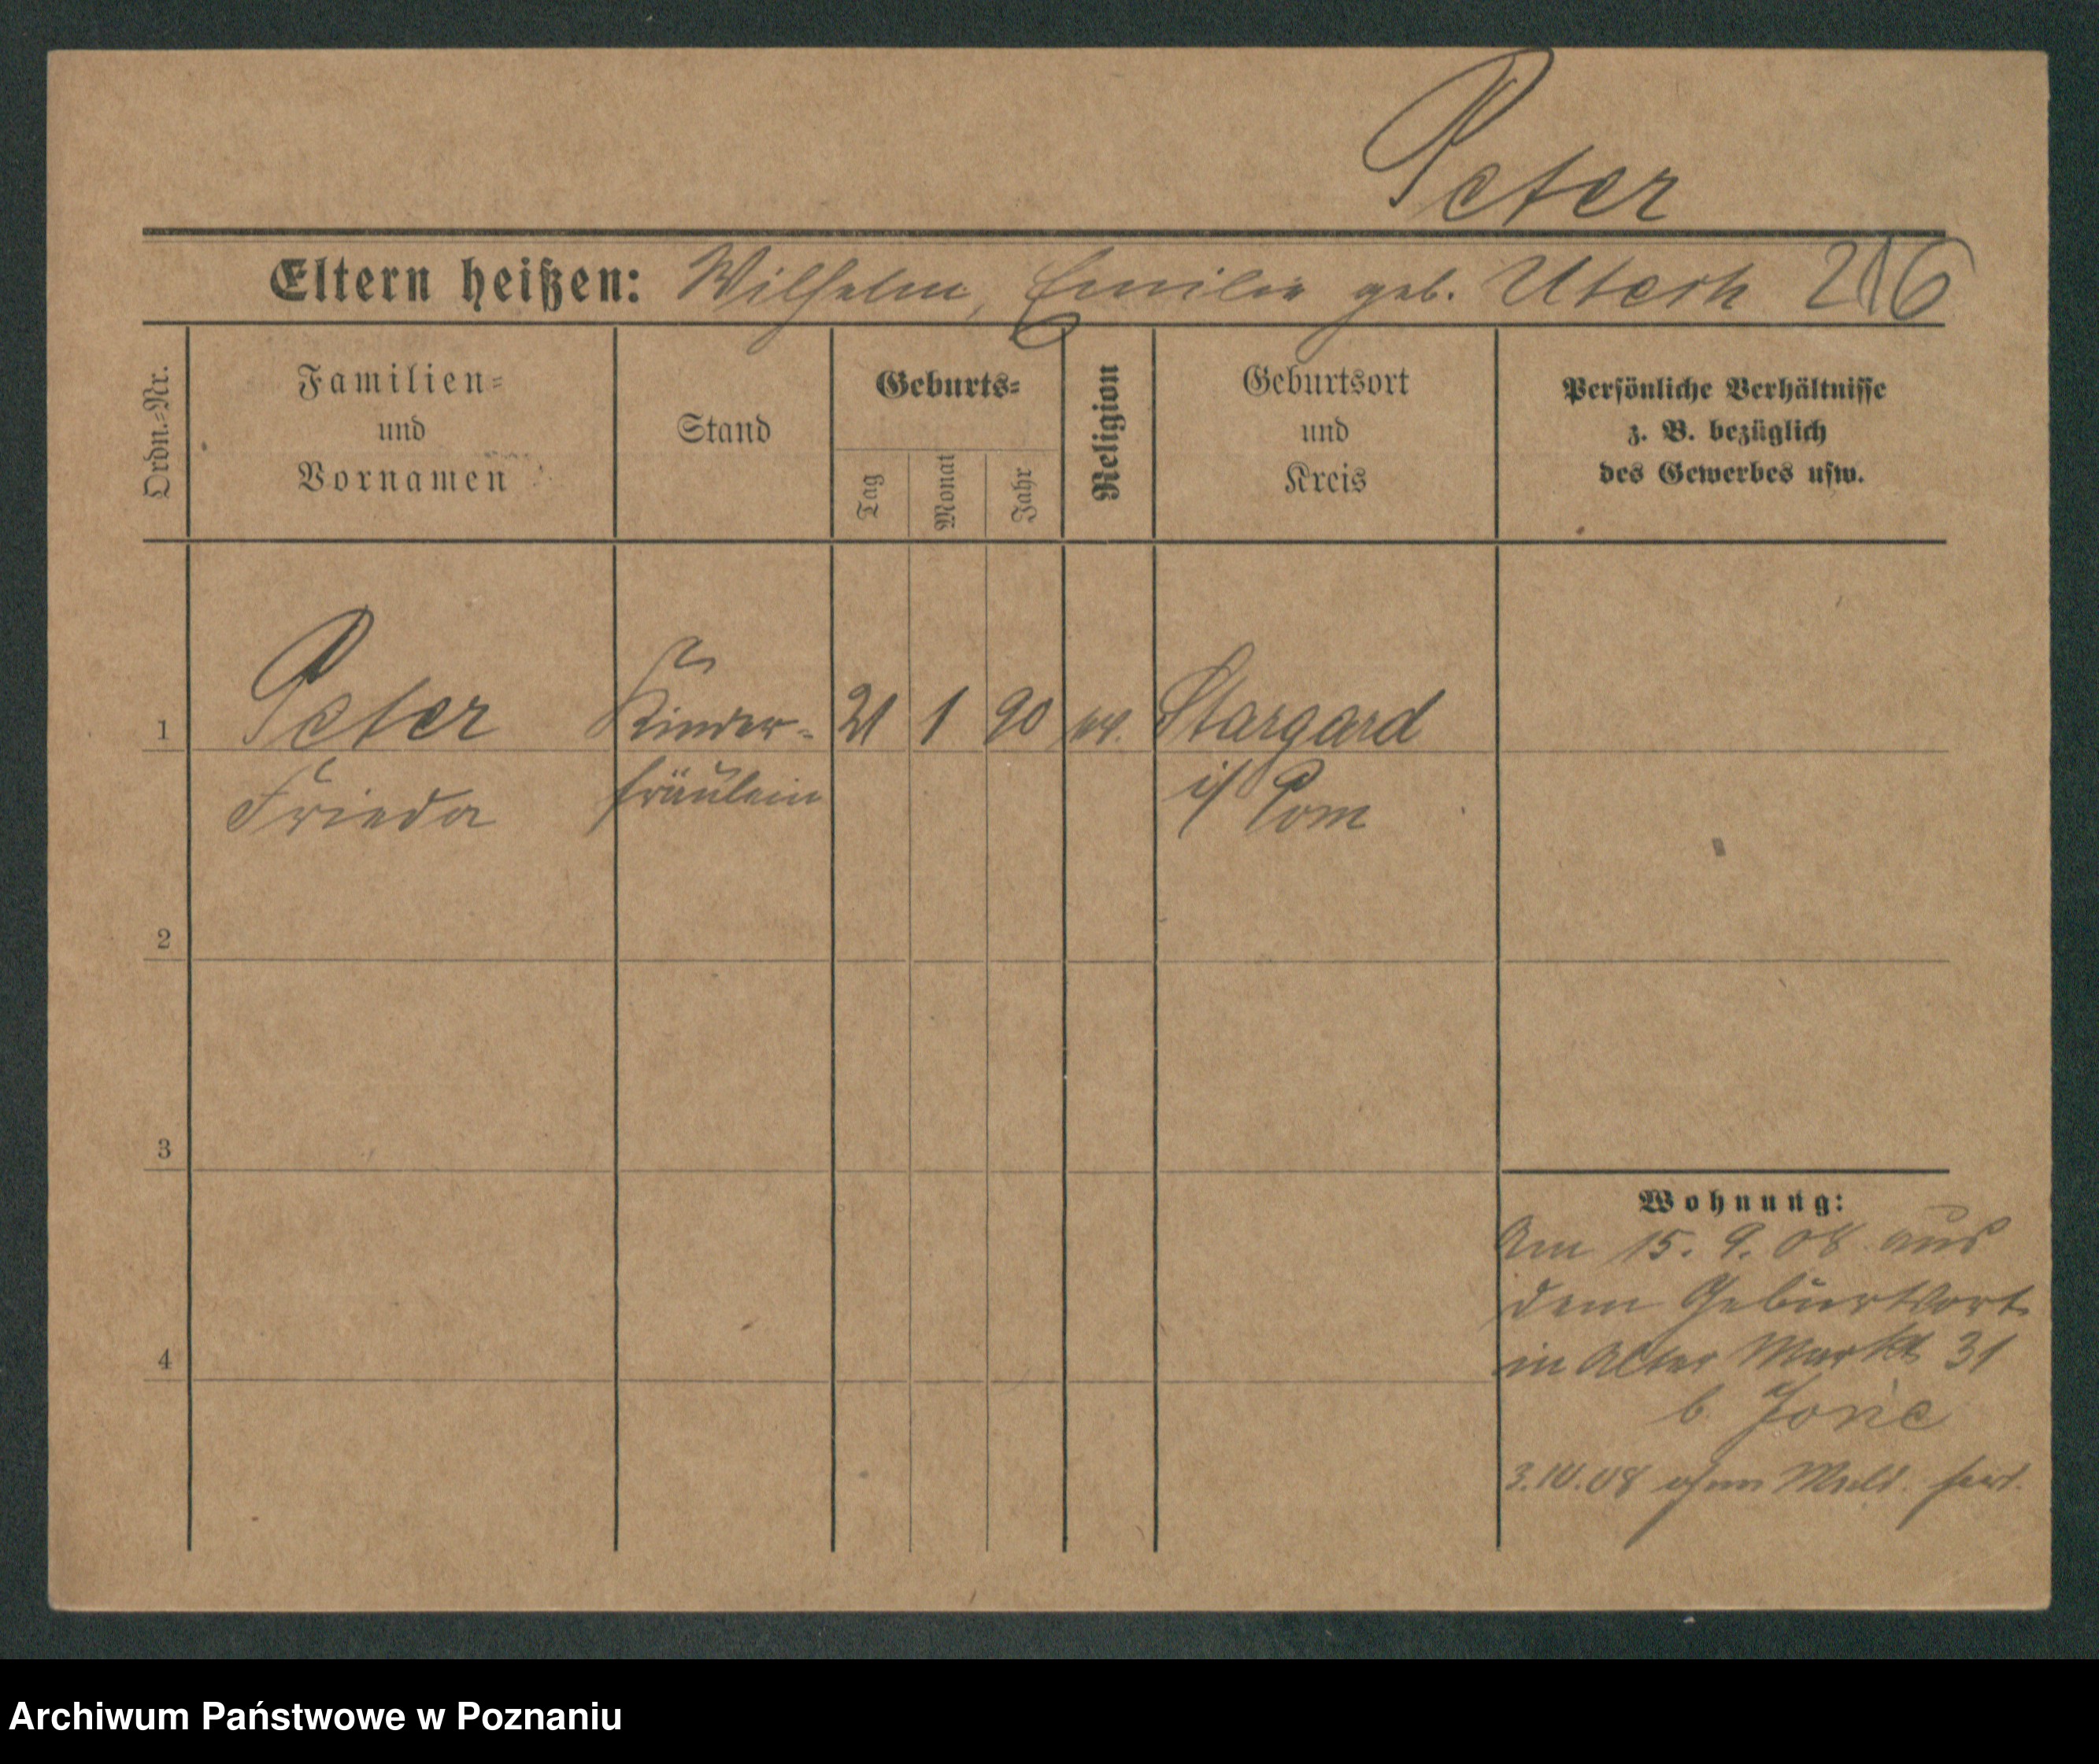 Peter
Eltern heißen: Wilhelm, Emilie geb. Utech 216
Ordn.=Nr.
Familien=
und
Vornamen
Stand
Geburts=
Tag
Monat
Jahr
Religion
Geburtsort
und
Kreis
Persönliche Verhältnisse
z. B. bezüglich
des Gewerbes usw.
1 Peter Kinder= 21 1 90 ev. Stargard
Frieda fräulein i/ Pom
2
3
4
Wohnung:
Am 15. 9. 08 aus
dem Geburtsort
in Alter Markt 31
b.
3.10.08 ohne Meld. fort.
Archiwum Państwowe w Poznaniu